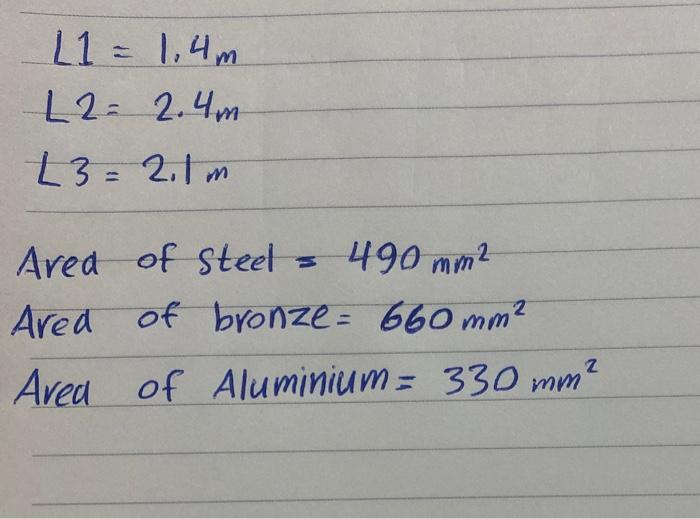 L1 = 1.4m
L2= 2.4m
L3 = 2.1 m
Area of steel = 490 mm²
Area of bronze= 660 mm²
Area of Aluminium= 330 mm²